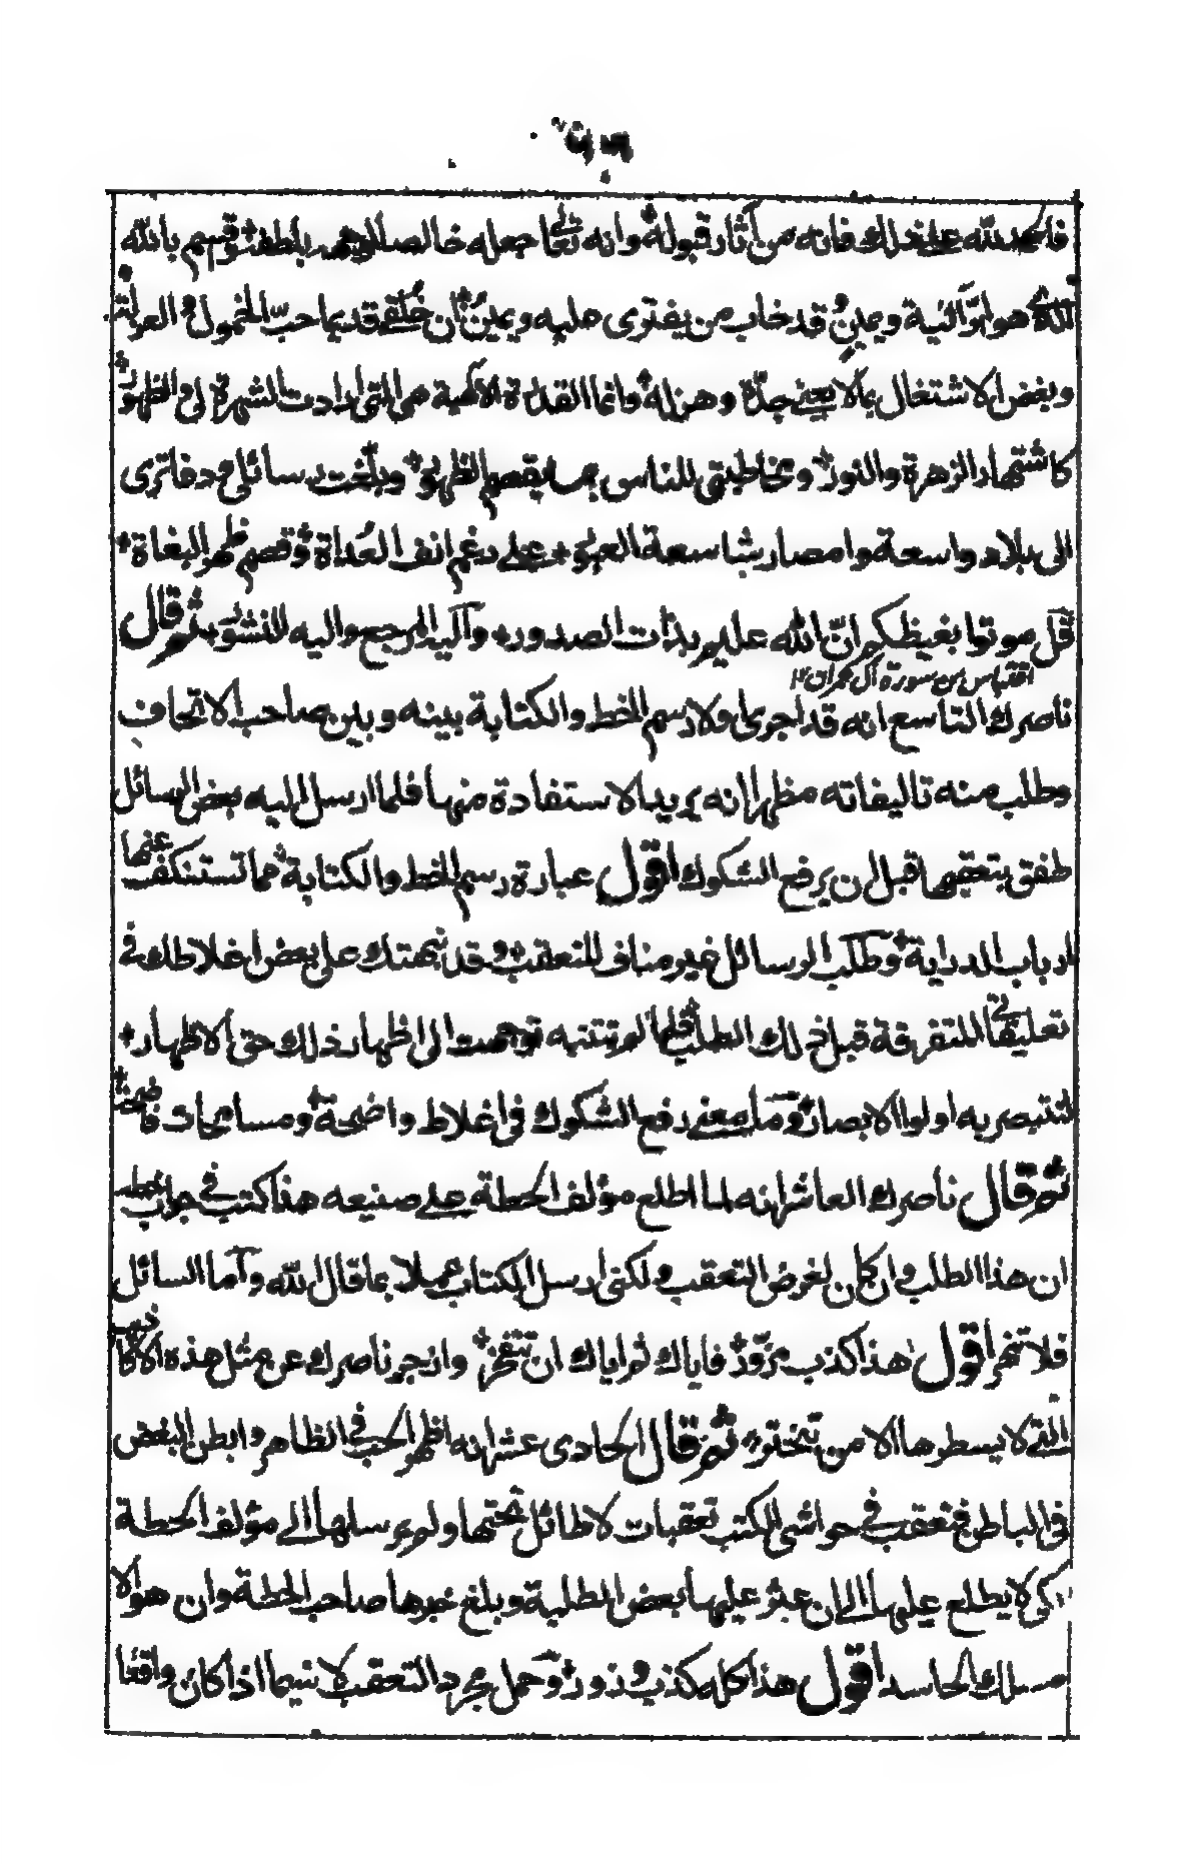 فالحمد لله على ذلك فانه من آثار قبوله وانه تعالى جعله خالصا لوجهه بلطفه وقسم بالله
الذي هو اوّاليّة ويمين قد خاب من يفترى عليه ويمين ان خلقي قديما حبّ الخمول والعزلة
وبغض الاشتغال بما لا يعنى جدّة وهزله وانما القدرة الالهية هي التي ارادت لشهرتي الظهور
كاشتهار الزهرة والنور ومخاطبتى للناس بما يقصم الظهور وبلّغت رسائلي ودفاترى
الى بلاد واسعة وامصار شاسعة العبور على رغم انف العُداة وقصم ظهر البغاة
قل موتوا بغيظكم انّ الله عليم بذات الصدور واليه المرجع واليه النشور ثم قال
اقتباس من سورة آل عمران ١٢
ناصرك التاسع انه قد اجرى اولا رسم الخط والكتابة بينه وبين صاحب الاتحاف
وطلب منه تاليفاته مظهرا انه يريد الاستفادة منها فلما ارسل اليه بعض الرسائل
طفق يتعقبها قبل ان يرفع الشكوك اقول عبارة رسم الخط والكتابة مما تستنكف عنها
ارباب الدراية وطلب الرسائل غير مناف للتعقب وقد نبهتك على بعض اغلاطه في
تعليقاتي المتفرقة قبل ذلك الطلب فلما لم تتنبه توجهت الى اظهار ذلك حق الاظهار
لتتبصر به اولوا الابصار وما معنى رفع الشكوك في اغلاط واضحة ومسامحات فاضحة
ثم قال ناصرك العاشر انه لما اطلع مؤلف الحطة على صنيعه هذا كتب في جواب خطه
ان هذا الطلب وان كان لغرض التعقب ولكني ارسل الكتاب عملا بما قال الله واما السائل
فلا تنهر اقول هذا كذب مزوّر فاياك ثم اياك ان تفخر وازجر ناصرك عن مثل هذه الاكاذيب
التي لا يسطرها الا من تبختر ثم قال الحادى عشر انه اظهر الحب في الظاهر وابطن البغض
في الباطن فتعقب في حواشي الكتب تعقبات لا طائل تحتها ولم يرسلها الى مؤلف الحطة
كي لا يطلع عليها الى ان عثر عليها بعض الطلبة وبلغ خبرها صاحب الحطة وان هو الا
مسلك الحاسد اقول هذا كله كذب وزور وحمل مجرد التعقب لا سيما اذا كان واقعا